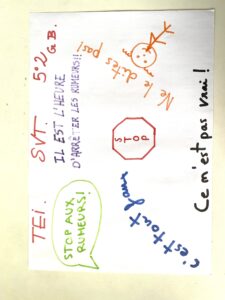 TEI. SVT. 5°2
G.B.
IL EST L'HEURE
D'ARRÊTER LES RUMEURS!!
Ne le dites pas!
STOP
STOP AUX
RUMEURS!
c'est tout faux
Ce n'est pas vrai!